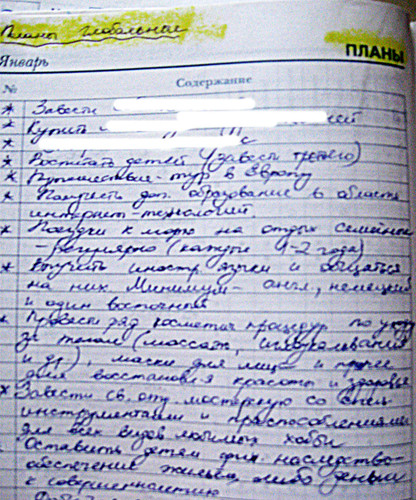 Планы глобальные
ПЛАНЫ
Январь
№ Содержание
* Завести
* Купить
*
* Воспитать детей (завести третьего)
* Путешествие-тур в Европу
* Получить доп. образование в области
интернет-технологий.
* Поездки к морю на отдых семейные
- регулярно (каждые 1-2 года)
* Выучить иностр. языки и общаться
на них. Минимум - англ., немецкий
и один восточный
* Провести ряд косметич. процедур по уходу
за телом (массаж, иглоукалывание
и др), маски для лица и прочее
для восстановл. красоты и здоровья
* Завести мастерскую со всеми
инструментами и приспособлениями
для всех видов любимых хобби
* Оставить детям наследство-
обеспечение жильём либо деньги
к совершеннолетию